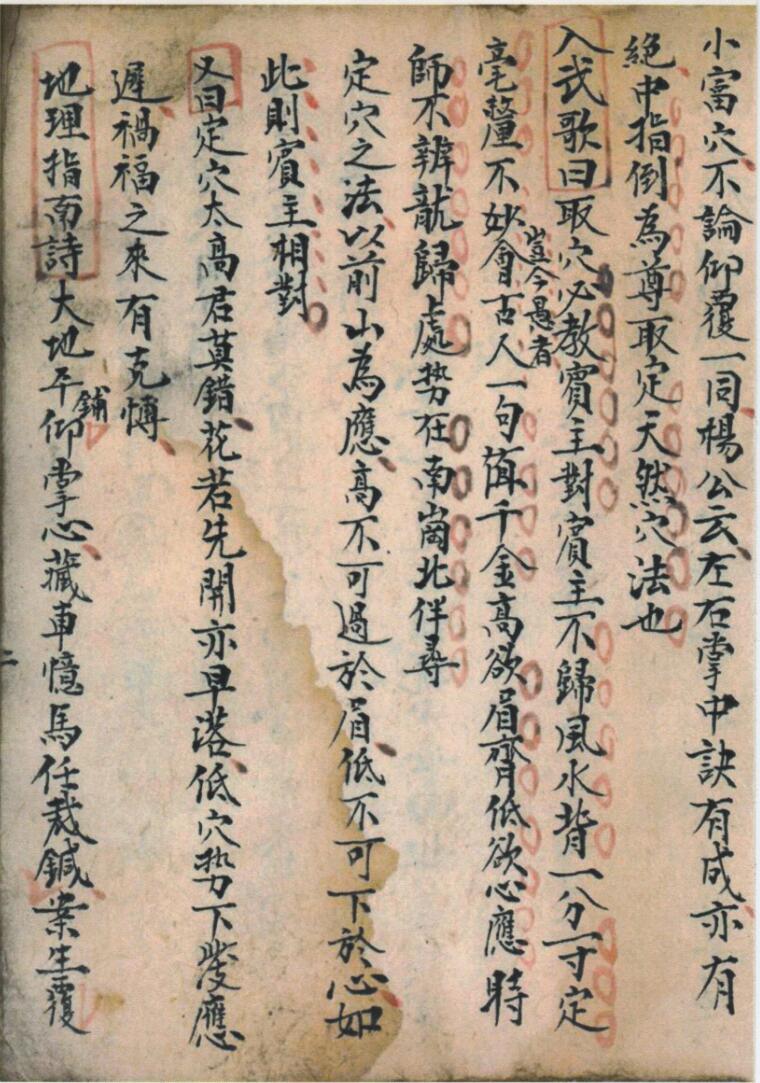 小富穴不論仰覆一同楊公云左右掌中訣有成亦有
絕中指倒為尊取定天然穴法也
入式歌曰取穴必教賓主對賓主不歸風水背一分一寸定
毫釐不妙會古人一句值千金高欲眉齊低欲心應時
豈今愚者
師不辨龍歸處势在南崗北伴尋
定穴之法以前山為應高不可過於眉低不可下於心如
此則賓主相對
又曰定穴太高君莫錯花若先開亦早落低穴势下發應
遲禍福之來有克慱
地理指南詩大地平仰掌心藏車憶馬任裁鍼業生覆
鋪